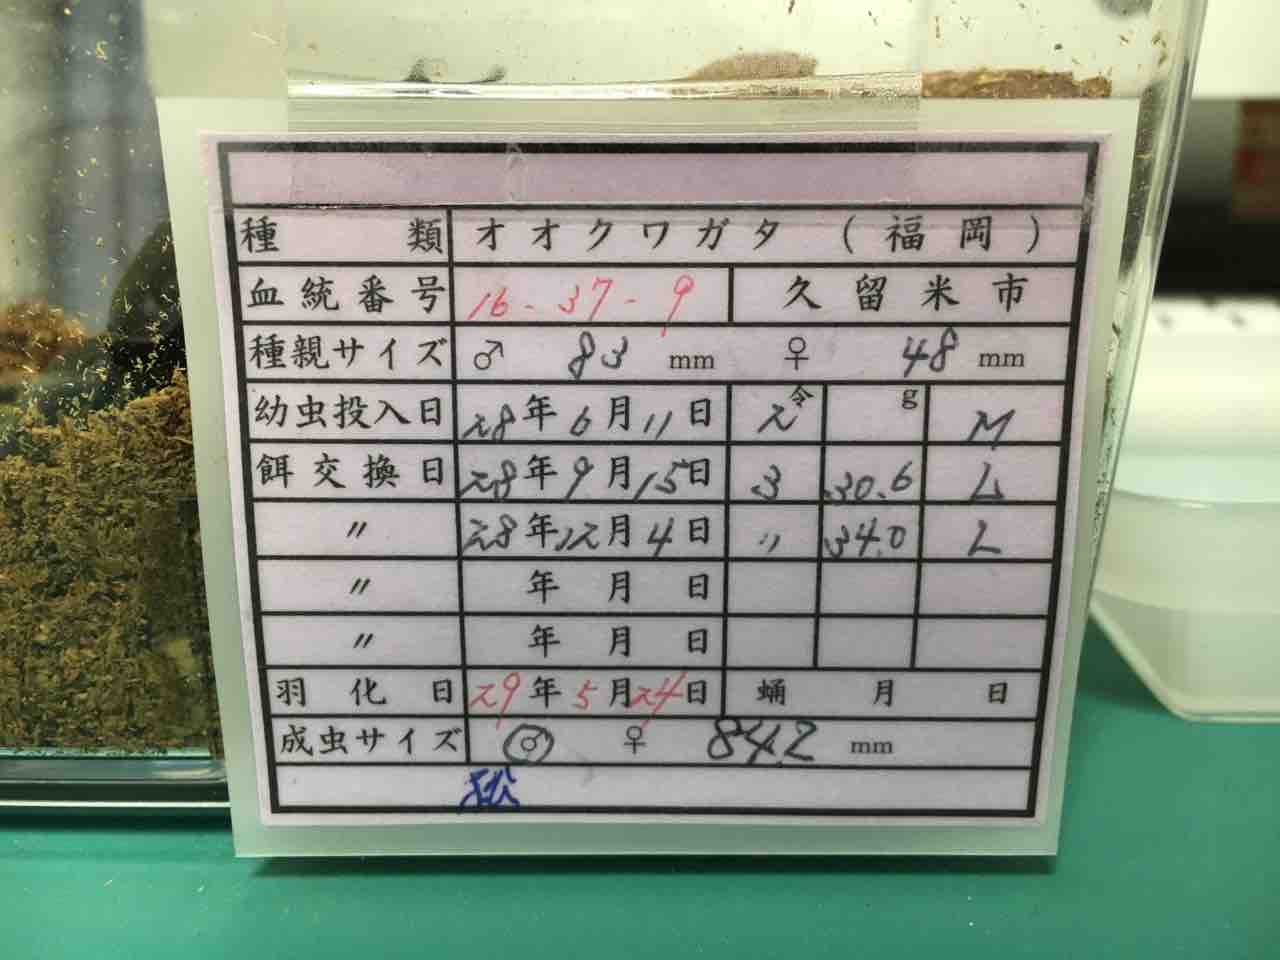 種類 オオクワガタ (福岡)
血統番号 16-37-9 久留米市
種親サイズ ♂ 83 mm ♀ 48 mm
幼虫投入日 28年6月11日 2令 g M
餌交換日 28年9月15日 3 30.6 L
〃 28年12月4日 〃 34.0 L
〃 年 月 日
〃 年 月 日
羽化日 29年5月24日 蛹 月 日
成虫サイズ ♂ ♀ 84.2 mm
松